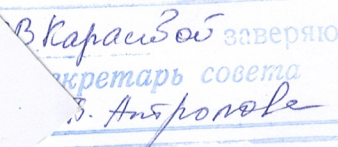 В. Карасивой заверяю
секретарь совета
В. Антропова